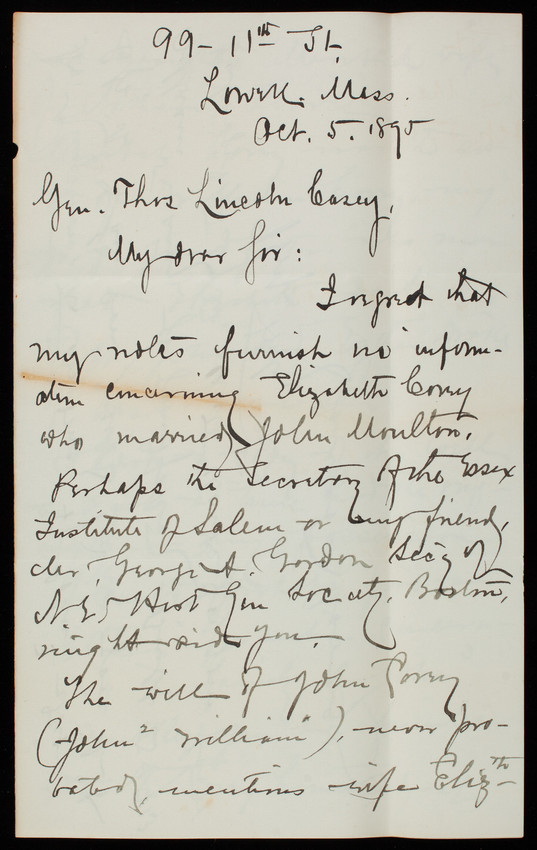 99 - 11th St,
Lowell. Mass.
Oct. 5. 1895
Gen. Thos Lincoln Casey,
My dear Sir:
I regret that
my notes furnish no inform-
ation concerning Elizabeth Corey
who married John Moulton.
Perhaps the Secretary of the Essex
Institute of Salem or my friend,
George A. Gordon Sec'y of
N.E. Hist Gen Society, Boston,
might aid you.
The will of John Corey
(John2 William1), never pro-
bated, mentions wife Elizth